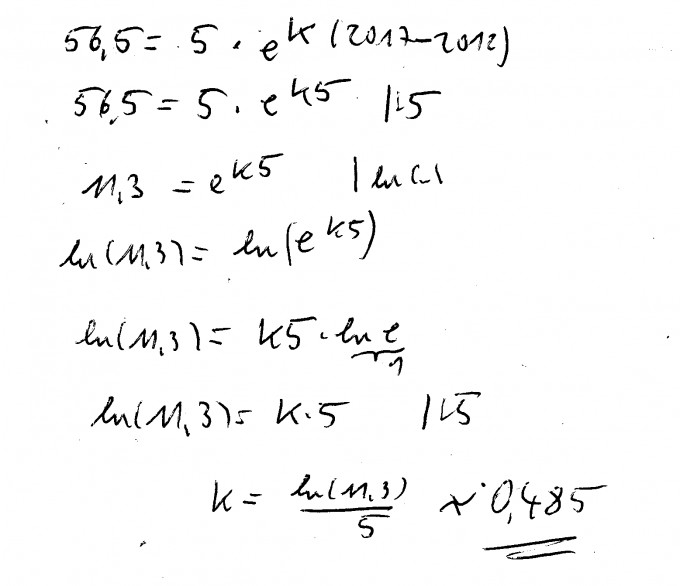 56,5 = 5 · e^k(2017-2012)
56,5 = 5 · e^k5 |:5
11,3 = e^k5 | ln(..)
ln(11,3) = ln(e^k5)
ln(11,3) = k5 · ln e
1
ln(11,3) = k·5 |:5
k = ln(11,3)/5 ≈ 0,485